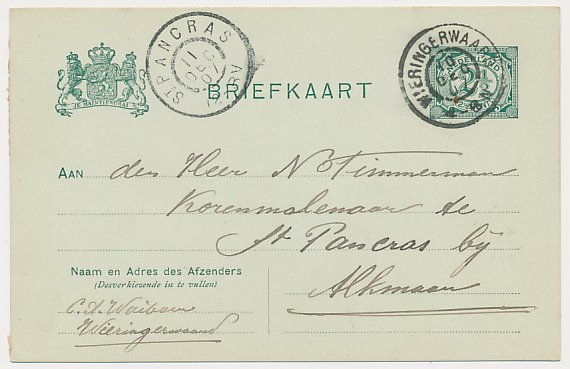 ST PANCRAS
11 DEC 07
WIERINGERWAARD
NEDERLAND
JE MAINTIENDRAI
BRIEFKAART
AAN den Heer N Timmerman
Korenmolenaar te
St Pancras bij
Alkmaar
Naam en Adres des Afzenders
(Desverkiezende in te vullen)
C. A. Waiboer
Wieringerwaard